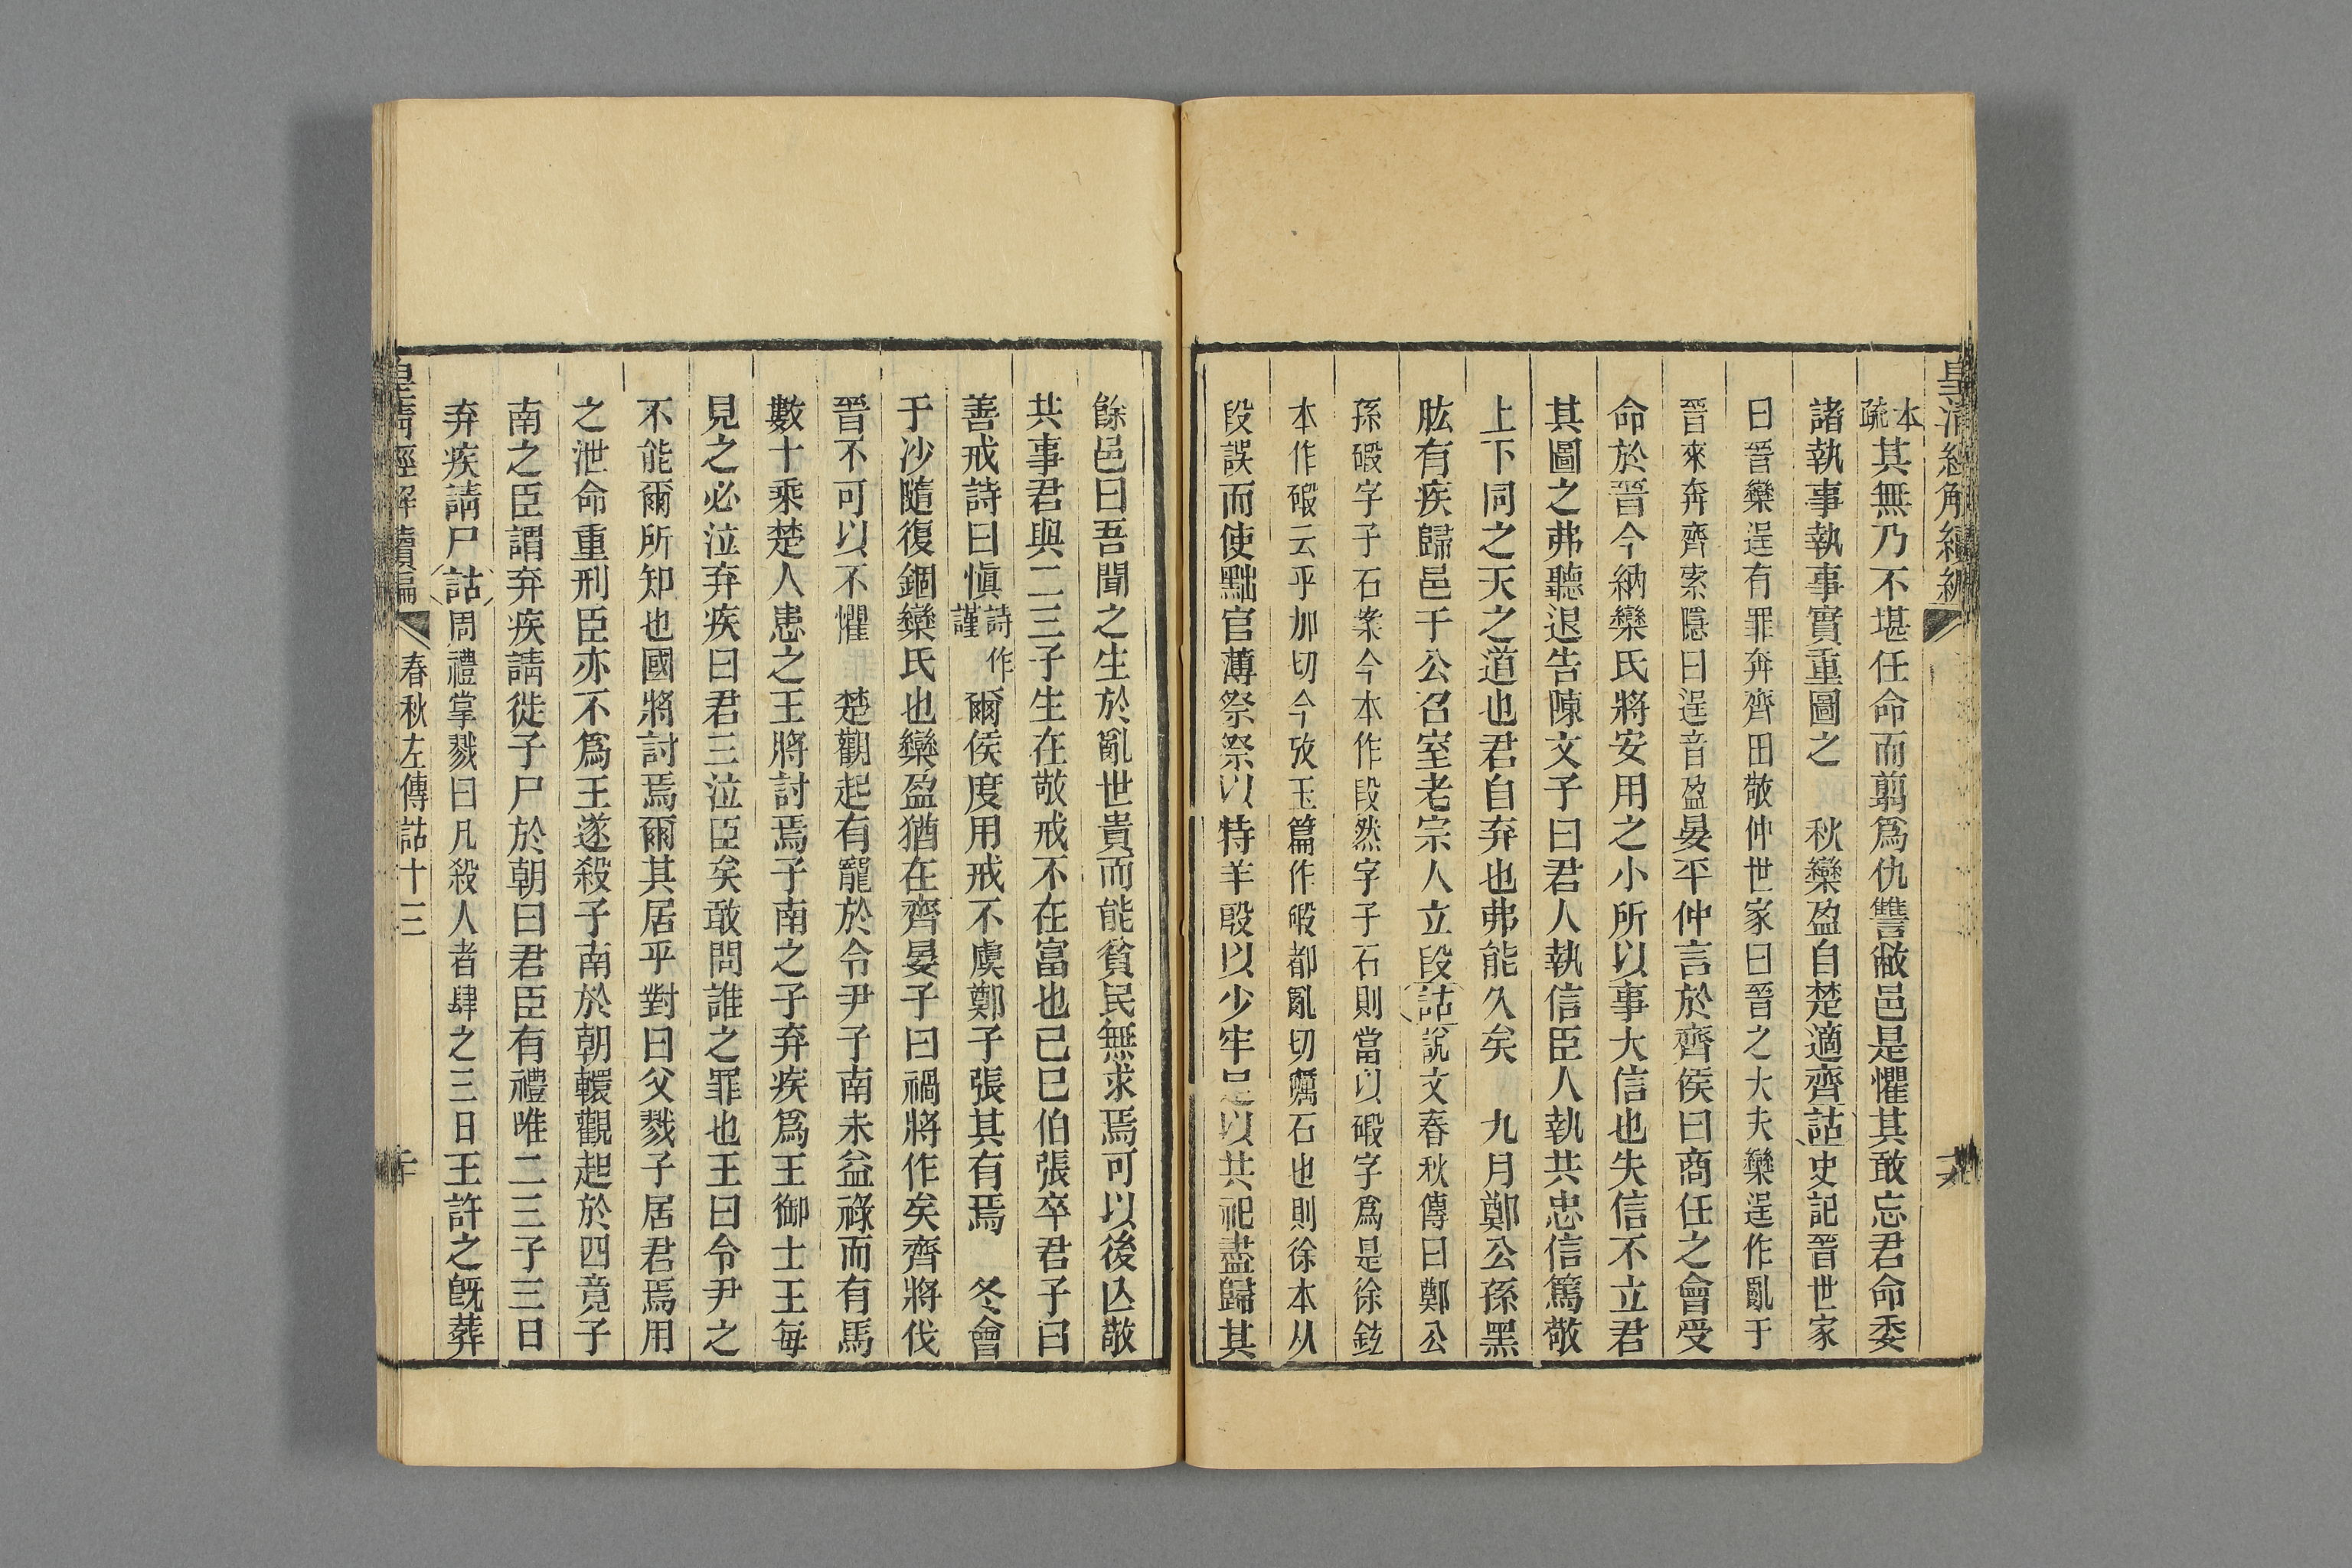 皇清經解續編
本疏其無乃不堪任命而翦爲仇讐敝邑是懼其敢忘君命委
諸執事執事實重圖之　秋欒盈自楚適齊詁史記晉世家
曰晉欒逞有罪奔齊田敬仲世家曰晉之大夫欒逞作亂于
晉來奔齊索隱曰逞音盈晏平仲言於齊侯曰商任之會受
命於晉今納欒氏將安用之小所以事大信也失信不立君
其圖之弗聽退告陳文子曰君人執信臣人執共忠信篤敬
上下同之天之道也君自弃也弗能久矣　九月鄭公孫黑
肱有疾歸邑于公召室老宗人立段詁說文春秋傳曰鄭公
孫碫字子石案今本作段然字子石則當以碫字爲是徐鉉
本作碬云乎加切今攷玉篇作碫都亂切礪石也則徐本从
段誤而使黜官薄祭祭以特羊殷以少牢足以共祀盡歸其
餘邑曰吾聞之生於亂世貴而能貧民無求焉可以後亾敬
共事君與二三子生在敬戒不在富也己巳伯張卒君子曰
善戒詩曰愼詩作謹爾侯度用戒不虞鄭子張其有焉　冬會
于沙隨復錮欒氏也欒盈猶在齊晏子曰禍將作矣齊將伐
晉不可以不懼　楚觀起有寵於令尹子南未益祿而有馬
數十乘楚人患之王將討焉子南之子弃疾爲王御士王每
見之必泣弃疾曰君三泣臣矣敢問誰之罪也王曰令尹之
不能爾所知也國將討焉爾其居乎對曰父戮子居君焉用
之泄命重刑臣亦不爲王遂殺子南於朝轘觀起於四竟子
南之臣謂弃疾請徙子尸於朝曰君臣有禮唯二三子三日
弃疾請尸詁周禮掌戮曰凡殺人者肆之三日王許之旣葬
皇清經解續編　春秋左傳詁十三